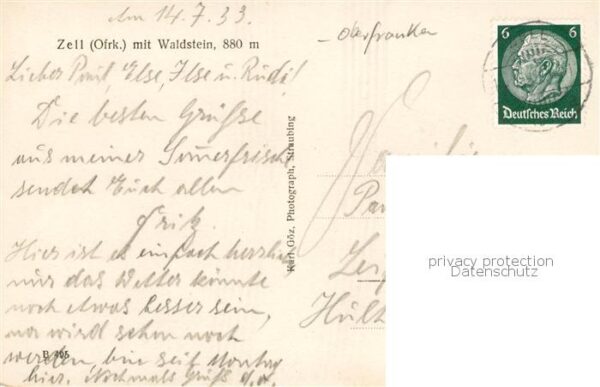 Am 14.7.33.
Zell (Ofrk.) mit Waldstein, 880 m
- Oberfranken
Lieber Paul, Else, Ilse u. Rudi!
Die besten Grüsse
aus meiner Somerfrische
sendet Euch allen
Fritz.
Hier ist es einfach herrlich,
nur das Wetter könnte
noch etwas besser sein,
na wird schon noch
werden, bin seit Montag
hier. Nochmals Gruß d. O.
B 495
Karl Göz, Photograph, Straubing
6 6
Deutsches Reich
Familie
privacy protection
Datenschutz